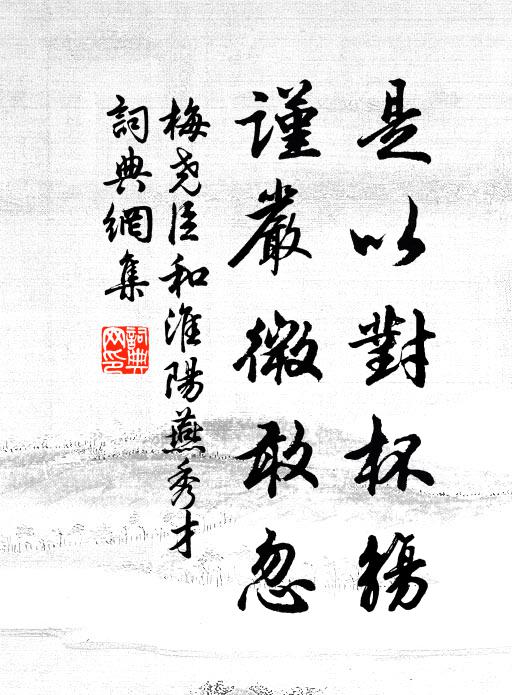 是以對杯觴
謹嚴微敢忽
梅堯臣和淮陽燕秀才
詞典網集
詞典
网印